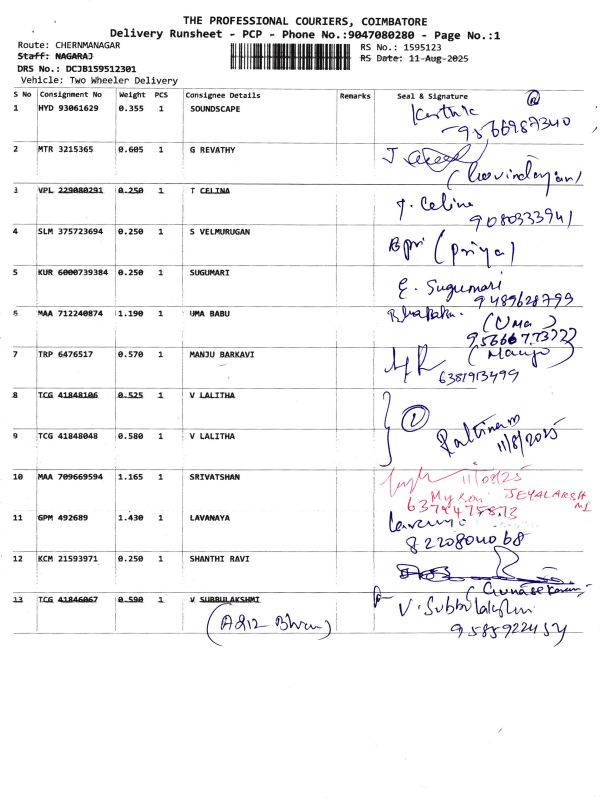 THE PROFESSIONAL COURIERS, COIMBATORE
Delivery Runsheet - PCP - Phone No.:9047080280 - Page No.:1
Route: CHERNMANAGAR RS No.: 1595123
Staff: NAGARAJ RS Date: 11-Aug-2025
DRS No.: DCJB159512301
Vehicle: Two Wheeler Delivery
S No Consignment No Weight PCS Consignee Details Remarks Seal & Signature
1 HYD 93061629 0.355 1 SOUNDSCAPE Karthik
9566987340
2 MTR 3215365 0.605 1 G REVATHY
(Govindarajan)
3 VPL 229080291 0.250 1 T CELINA T. Celina
9080333941
4 SLM 375723694 0.250 1 S VELMURUGAN (Priya)
5 KUR 6000739384 0.250 1 SUGUMARI E. Sugumari
9489628799
6 MAA 712240874 1.190 1 UMA BABU (Uma)
7 TRP 6476517 0.570 1 MANJU BARKAVI (Manju)
6381913499
8 TCG 41848106 0.525 1 V LALITHA
9 TCG 41848048 0.580 1 V LALITHA
11/8/2025
10 MAA 709669594 1.165 1 SRIVATSHAN 11/08/25
JEYALAKSHMI
11 GPM 492689 1.430 1 LAVANAYA
8220804068
12 KCM 21593971 0.250 1 SHANTHI RAVI
(Gunasekaran)
13 TCG 41846067 0.590 1 V SUBBULAKSHMI V. Subbulakshmi
9585922454